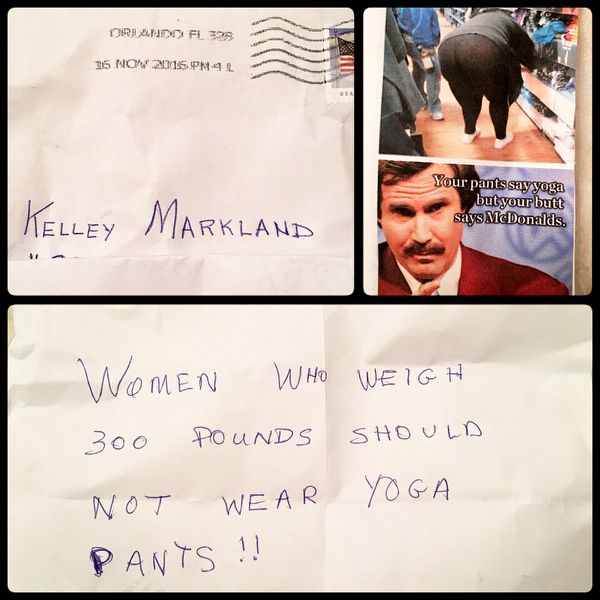 ORLANDO FL 328
16 NOV 2016 PM 4 L
USA
KELLEY MARKLAND
Your pants say yoga
but your butt
says McDonalds.
WOMEN WHO WEIGH
300 POUNDS SHOULD
NOT WEAR YOGA
PANTS!!